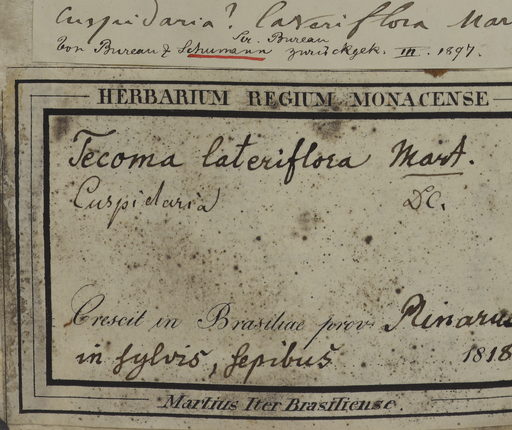 Cuspidaria? lateriflora Mar
Sir. Bureau
Von Bureau & Schumann zurückgek. III. 1897.
HERBARIUM REGIUM MONACENSE
Tecoma lateriflora Mart.
Cuspidaria DC.
Crescit in Brasiliae prov. Minarum
in sylvis, sepibus 1818
Martius Iter Brasiliense.